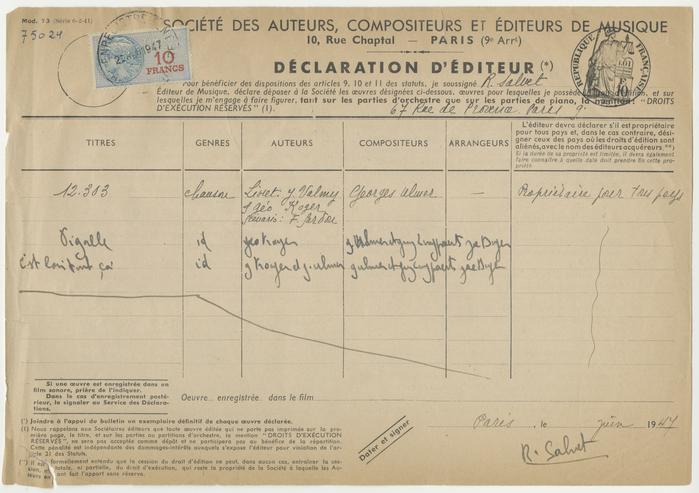 Mod. 13 (Série 6-2-41)
75024
SOCIÉTÉ DES AUTEURS, COMPOSITEURS ET ÉDITEURS DE MUSIQUE
10, Rue Chaptal — PARIS (9e Arrt)
1947
10
FRANCS
RÉPUBLIQUE FRANÇAISE
DÉCLARATION D'ÉDITEUR (*)
Pour bénéficier des dispositions des articles 9, 10 et 11 des statuts, je soussigné R. Salvet
Éditeur de Musique, déclare déposer à la Société les œuvres désignées ci-dessous, œuvres pour lesquelles je possède édition, et sur
lesquelles je m'engage à faire figurer, tant sur les parties d'orchestre que sur les parties de piano, la mention: "DROITS
D'EXÉCUTION RÉSERVÉS" (1).
67 Rue de Provence. Paris 9e
TITRES
GENRES
AUTEURS
COMPOSITEURS
ARRANGEURS
L'éditeur devra déclarer s'il est propriétaire
pour tous pays et, dans le cas contraire, dési-
gner ceux des pays où les droits d'édition sont
aliénés, avec le nom des éditeurs acquéreurs. **)
Si la durée de sa propriété est limitée, il devra également
faire connaître à quelle date doit prendre fin cette pro-
priété.
12.383 chanson Georges Ulmer — Propriétaire pour tous pays
Géo Koger
Pigalle id geo Koger
c'est loin tout ça id g Koger et g. ulmer
Si une œuvre est enregistrée dans un
film sonore, prière de l'indiquer.
Dans le cas d'enregistrement posté-
rieur, le signaler au Service des Déclara-
tions.
Oeuvre enregistrée dans le film
(*) Joindre à l'appui du bulletin un exemplaire définitif de chaque œuvre déclarée.
(1) Nous rappelons aux Sociétaires éditeurs que toute œuvre éditée qui ne porte pas imprimée sur la pre-
mière page, le titre, et sur les parties ou partitions d'orchestre, la mention "DROITS D'EXÉCUTION
RÉSERVÉS", ne sera pas acceptée comme dépôt et ne participera pas au bénéfice de la répartition.
Cette pénalité est indépendante des dommages-intérêts auxquels s'expose l'éditeur pour violation de l'ar-
ticle 21 des Statuts.
formellement entendu que la cession du droit d'édition ne peut, dans aucun cas, entraîner la ces-
totale, ni partielle, du droit d'exécution, qui reste la propriété de la Société à laquelle les Au-
ont fait l'apport sans réserve.
Dater et signer
Paris, le juin 1947
R. Salvet